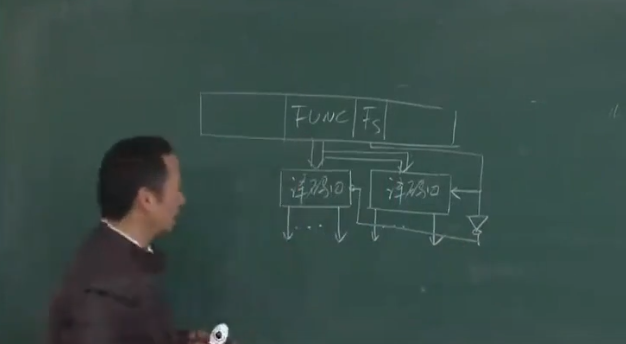 FUNC Fs
译码 译码